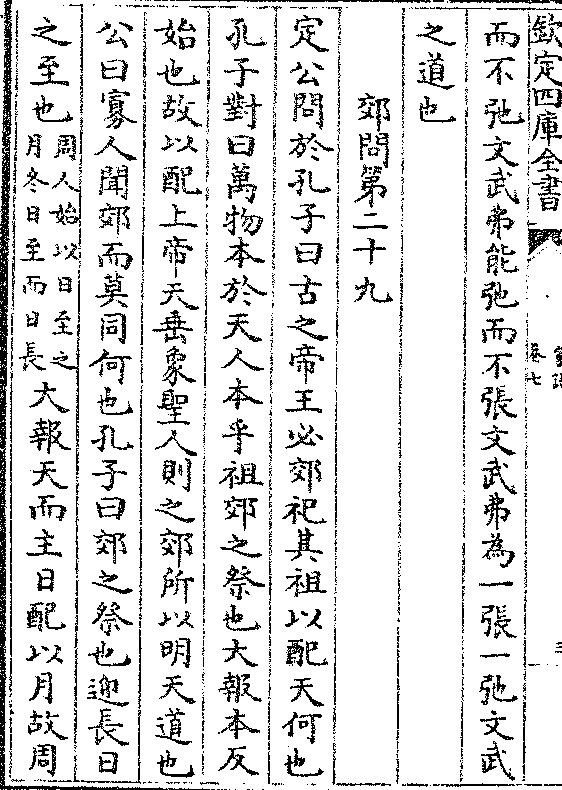 欽定四庫全書
卷七
三
而不弛文武弗能弛而不張文武弗為一張一弛文武
之道也
郊問第二十九
定公問於孔子曰古之帝王必郊祀其祖以配天何也
孔子對曰萬物本於天人本乎祖郊之祭也大報本反
始也故以配上帝天垂象聖人則之郊所以明天道也
公曰寡人聞郊而莫同何也孔子曰郊之祭也迎長日
之至也周人始以日至之月冬日至而日長大報天而主日配以月故周